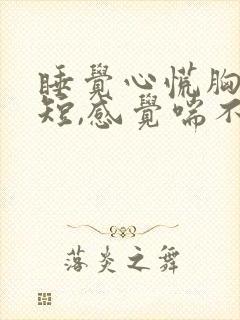 睡覺心慌胸
短,感覺喘不
落炎之舞